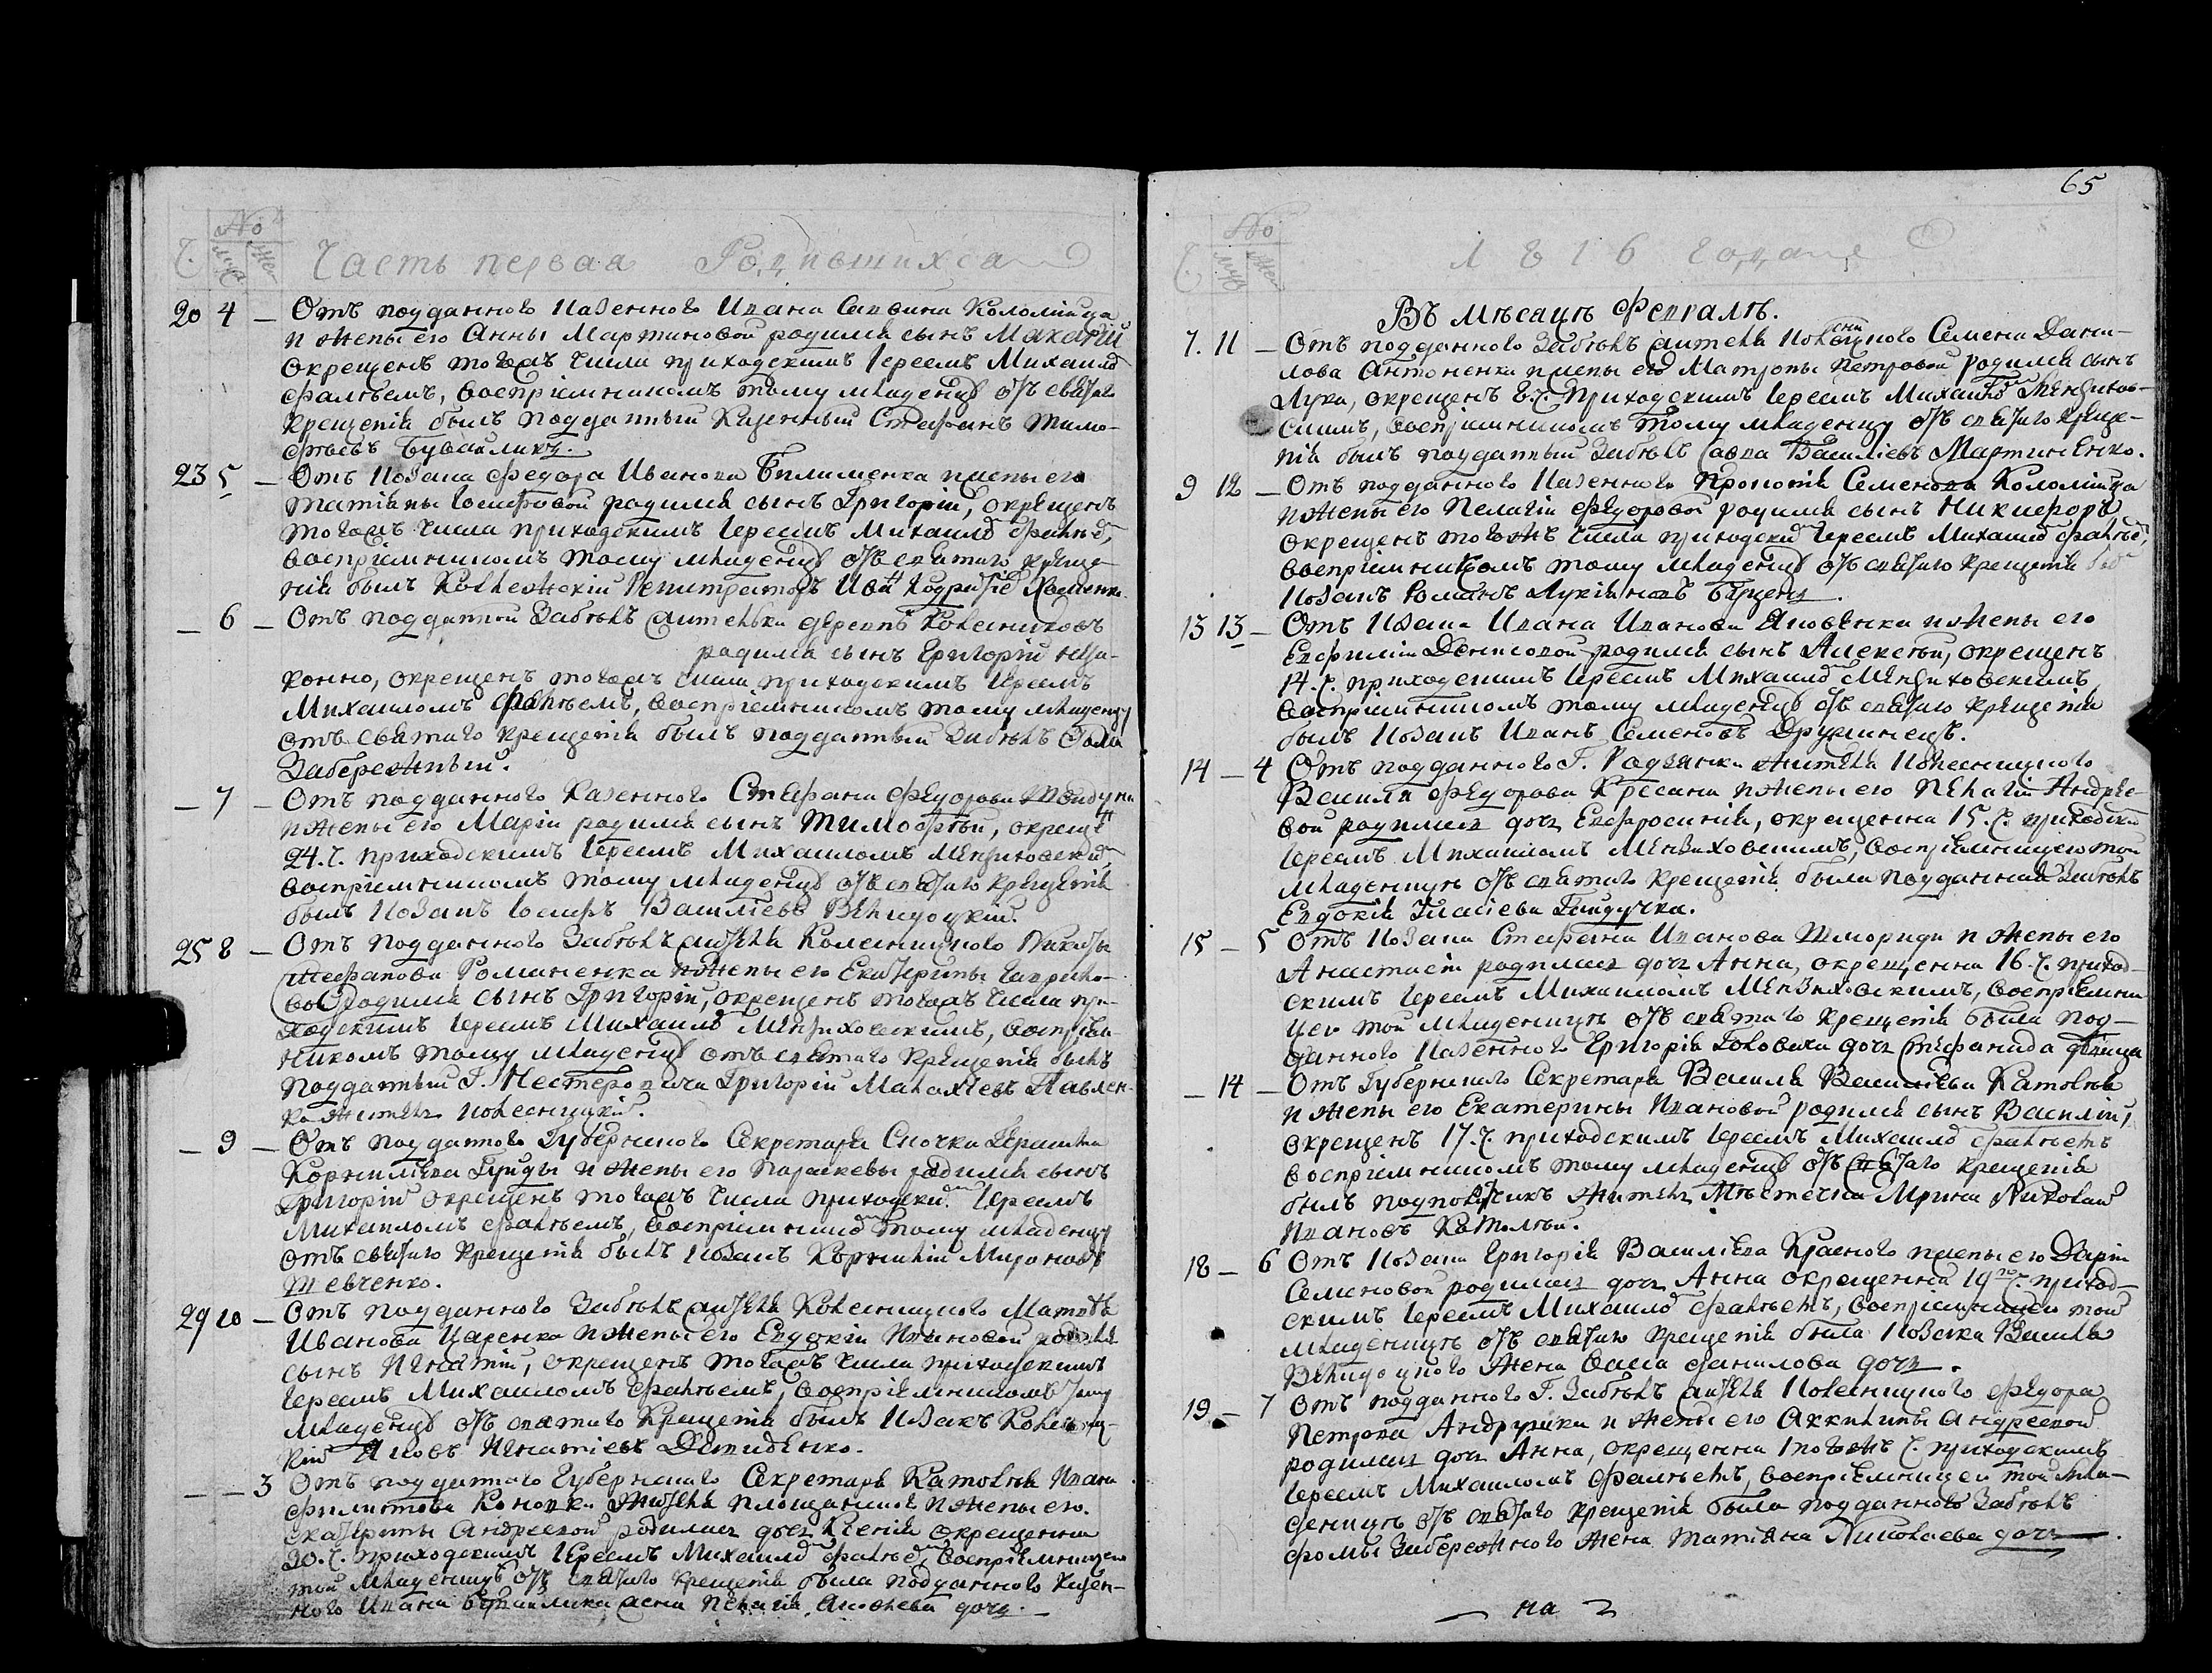 №
Ч. Муж Жен Часть первая Родившихся
20 4 — Отъ подданного Казенного Ивана Саввина Коломійца
и жены его Анны Мартиновой родился сынъ Макарій
окрещенъ тогожъ числа приходскимъ Іереемъ Михаиломъ
Фалѣемъ, воспріемникомъ тому младенцу отъ святаго
крещенія былъ подданный Казенный Стефанъ Тимо-
феевъ
23 5 — Отъ Козака Федора Иванова Билименка и жены его
Татіаны Іосифовой родился сынъ Григорій, окрещенъ
тогожъ числа приходскимъ Іереемъ Михаиломъ Фалѣемъ,
воспріемникомъ тому младенцу отъ святаго креще-
нія былъ Коллежскій Регистраторъ Иванъ
— 6 — Отъ подданной Забѣлъ жителки деревнѣ Колесниковъ
родился сынъ Григорій неза-
конно, окрещенъ тогожъ числа приходскимъ Іереемъ
Михаиломъ Фалѣемъ, воспріемникомъ тому младенцу
отъ святаго крещенія былъ подданный Забѣлъ Фома
Забережный.
— 7 — Отъ подданного Казенного Стефана Федорова
и жены его Маріи родился сынъ Тимофѣй, окрещенъ
24. Ч. приходскимъ Іереемъ Михаиломъ Мензиховскимъ
воспріемникомъ тому младенцу отъ святаго крещенія
былъ Козакъ Іосифъ Василіевъ Велигодцкій.
25 8 — Отъ подданного Забѣлъ жителя Колесницкого Никиты
Стефанова Романенка и жены его Екатерины Гаврило-
вой родился сынъ Григорій, окрещенъ тогожъ числа при-
ходскимъ Іереемъ Михаиломъ Мензиховскимъ, воспріем-
никомъ тому младенцу отъ святаго крещенія былъ
подданный Г. Нестеровича Григорій Малахіевъ Павлен-
ко житель Колесницкій.
— 9 — Отъ подданного Губернского Секретаря Сиочка
Корниліева и жены его Параскевы родился сынъ
Григорій окрещенъ тогожъ числа приходскимъ Іереемъ
Михаиломъ Фалѣемъ, воспріемникомъ тому младенцу
отъ святаго крещенія былъ Козакъ Корнилій Мироновъ
Шевченко.
29 10 — Отъ подданного Забѣлъ жителя Колесницкого Матвѣя
Иванова Царенка и жены его Евдокіи Ивановой родился
сынъ Игнатій, окрещенъ тогожъ числа приходскимъ
Іереемъ Михаиломъ Фалѣемъ, воспріемникомъ тому
младенцу отъ святаго Крещенія былъ Козакъ Колесниц-
кій Яковъ Игнатіевъ Демиденко.
— — 3 Отъ подданного Губернского Секретаря Катовѣя Ивана
Филиппова Коновки жителя и жены его
Екатерины Андреевой родилась дочь Ксенія окрещенна
30. Ч. приходскимъ Іереемъ Михаиломъ Фалѣемъ, воспріемницею
той младеницѣ отъ святаго крещенія была подданного Казен-
ного Ивана жена Пелагія дочь. —
65
№
Ч. Муж Жен 1816 Года
Въ мѣсяцѣ Февралѣ.
7. 11 — Отъ подданного Забѣлъ жителя Колесницкого Семена Дани-
лова Антоненка и жены его Матроны Петровой родился сынъ
Лука, окрещенъ 8. Ч. Приходскимъ Іереемъ Михаиломъ Мензихов-
скимъ, воспріемникомъ тому младенцу отъ святаго креще-
нія былъ подданный Забѣлъ Савва Василіевъ Мартиненко.
9 12 — Отъ подданного Казенного Прокопія Семенова Коломійца
и жены его Пелагіи Федоровой родился сынъ Никифоръ
окрещенъ тогожъ числа приходскимъ Іереемъ Михаиломъ Фалѣемъ,
воспріемникомъ тому младенцу отъ святаго крещенія былъ
Козакъ Романъ Лукіяновъ
13 13 — Отъ Козака Ивана Иванова Яковенка и жены его
Евфиміи Денисовой родился сынъ Алексѣй, окрещенъ
14. Ч. приходскимъ Іереемъ Михаиломъ Мензиховскимъ
воспріемникомъ тому младенцу отъ святаго крещенія
былъ Козакъ Иванъ Семеновъ Дружинецъ.
14 — 4 Отъ подданного Г. Родзянки жителя Колесницкого
Василія Федорова Кресана и жены его Пелагіи Андрее-
вой родилась дочь Евфросинія, окрещенна 15. Ч. приходскимъ
Іереемъ Михаиломъ Мензиховскимъ, воспріемницею той
младеницѣ отъ святаго крещенія была подданная Забѣлъ
Евдокія Власіева Гайдучка.
15 — 5 Отъ Козака Стефана Иванова Шмориди и жены его
Анастасіи родилась дочь Анна, окрещенна 16. Ч. приход-
скимъ Іереемъ Михаиломъ Мензиховскимъ, воспріемни-
цею той младеницѣ отъ святаго крещенія была под-
данного Казенного Григорія Головка дочь Стефанида дѣвица
— 14 — Отъ Губернского Секретаря Василія Василіева Катовѣя
и жены его Екатерины Ивановой родился сынъ Василій,
окрещенъ 17. Ч. приходскимъ Іереемъ Михаиломъ Фалѣемъ
воспріемникомъ тому младенцу отъ святаго крещенія
былъ подпоручикъ житель Мѣстечка Мрина Николай
Ивановъ Катовѣй.
18 — 6 Отъ Козака Григорія Василіева Красного и жены его Даріи
Семеновой родилась дочь Анна окрещенна 19го Ч. приход-
скимъ Іереемъ Михаиломъ Фалѣемъ, воспріемницею той
младеницѣ отъ святаго крещенія была Козака Василія
Велигодцкого жена Васса Данилова дочь.
19 — 7 Отъ подданного Г. Забѣлъ жителя Колесницкого Федора
Петрова Андрушка и жены его Аккилины Андреевой
родилась дочь Анна, окрещенна тогожъ Ч. приходскимъ
Іереемъ Михаиломъ Фалѣемъ, воспріемницею той мла-
деницѣ отъ святаго крещенія была подданного Забѣлъ
Фомы Забережного жена Татіяна Николаева дочь.
— на